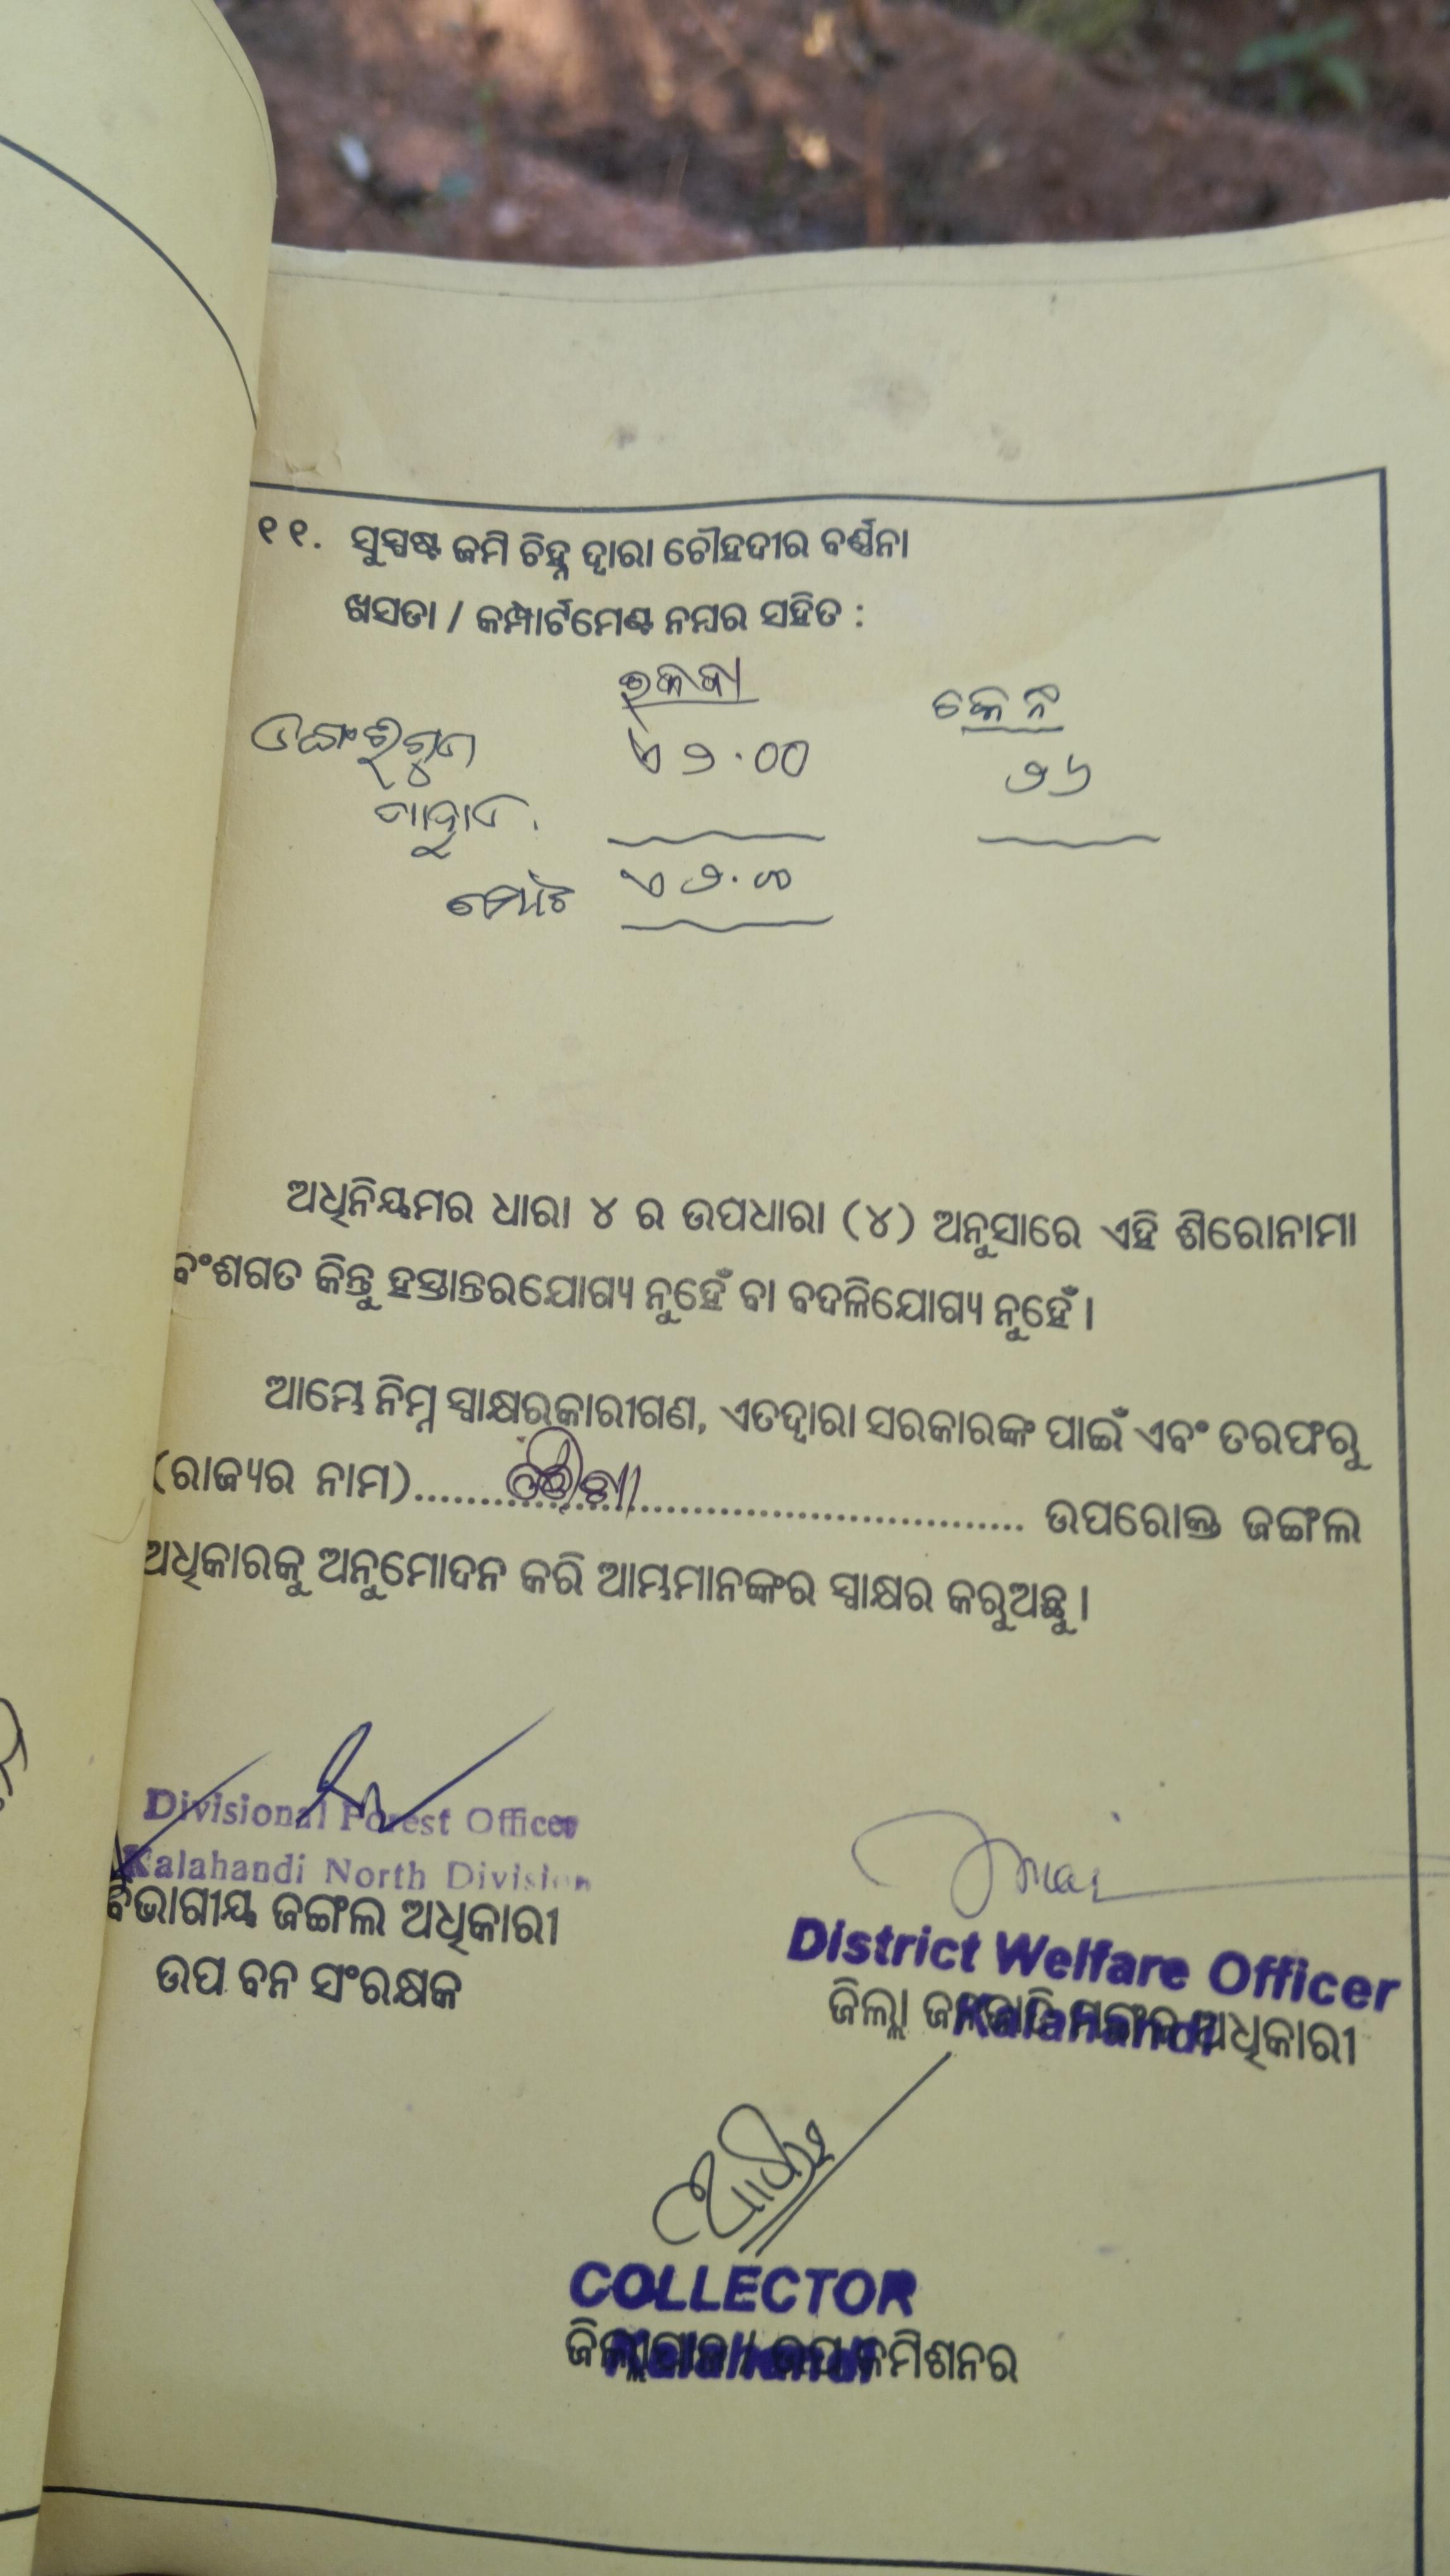 ୧୧. ସୁସ୍ପଷ୍ଟ ଜମି ଚିହ୍ନ ଦ୍ୱାରା ଚୌହଦୀର ବର୍ଣ୍ଣନା
ଖସଡା / କମ୍ପାର୍ଟମେଣ୍ଟ ନମ୍ବର ସହିତ :
ରକବା
କେ ନ
ଏ ୨.00
୨୬
ମୋଟ ଏ ୨.00
ଅଧିନିୟମର ଧାରା ୪ ର ଉପଧାରା (୪) ଅନୁସାରେ ଏହି ଶିରୋନାମା
ବଂଶଗତ କିନ୍ତୁ ହସ୍ତାନ୍ତରଯୋଗ୍ୟ ନୁହେଁ ବା ବଦଳିଯୋଗ୍ୟ ନୁହେଁ ।
ଆମ୍ଭେ ନିମ୍ନ ସ୍ୱାକ୍ଷରକାରୀଗଣ, ଏତଦ୍ୱାରା ସରକାରଙ୍କ ପାଇଁ ଏବଂ ତରଫରୁ
(ରାଜ୍ୟର ନାମ)........ଓଡ଼ିଶା........ ଉପରୋକ୍ତ ଜଙ୍ଗଲ
ଅଧିକାରକୁ ଅନୁମୋଦନ କରି ଆମ୍ଭମାନଙ୍କର ସ୍ୱାକ୍ଷର କରୁଅଛୁ ।
Divisional Forest Officer
Kalahandi North Division
ବିଭାଗୀୟ ଜଙ୍ଗଲ ଅଧିକାରୀ
ଉପ ବନ ସଂରକ୍ଷକ
District Welfare Officer
Kalahandi
ଜିଲ୍ଲା ଜନଜାତି ମଙ୍ଗଳ ଅଧିକାରୀ
COLLECTOR
Kalahandi
ଜିଲ୍ଲାପାଳ / ଉପ କମିଶନର